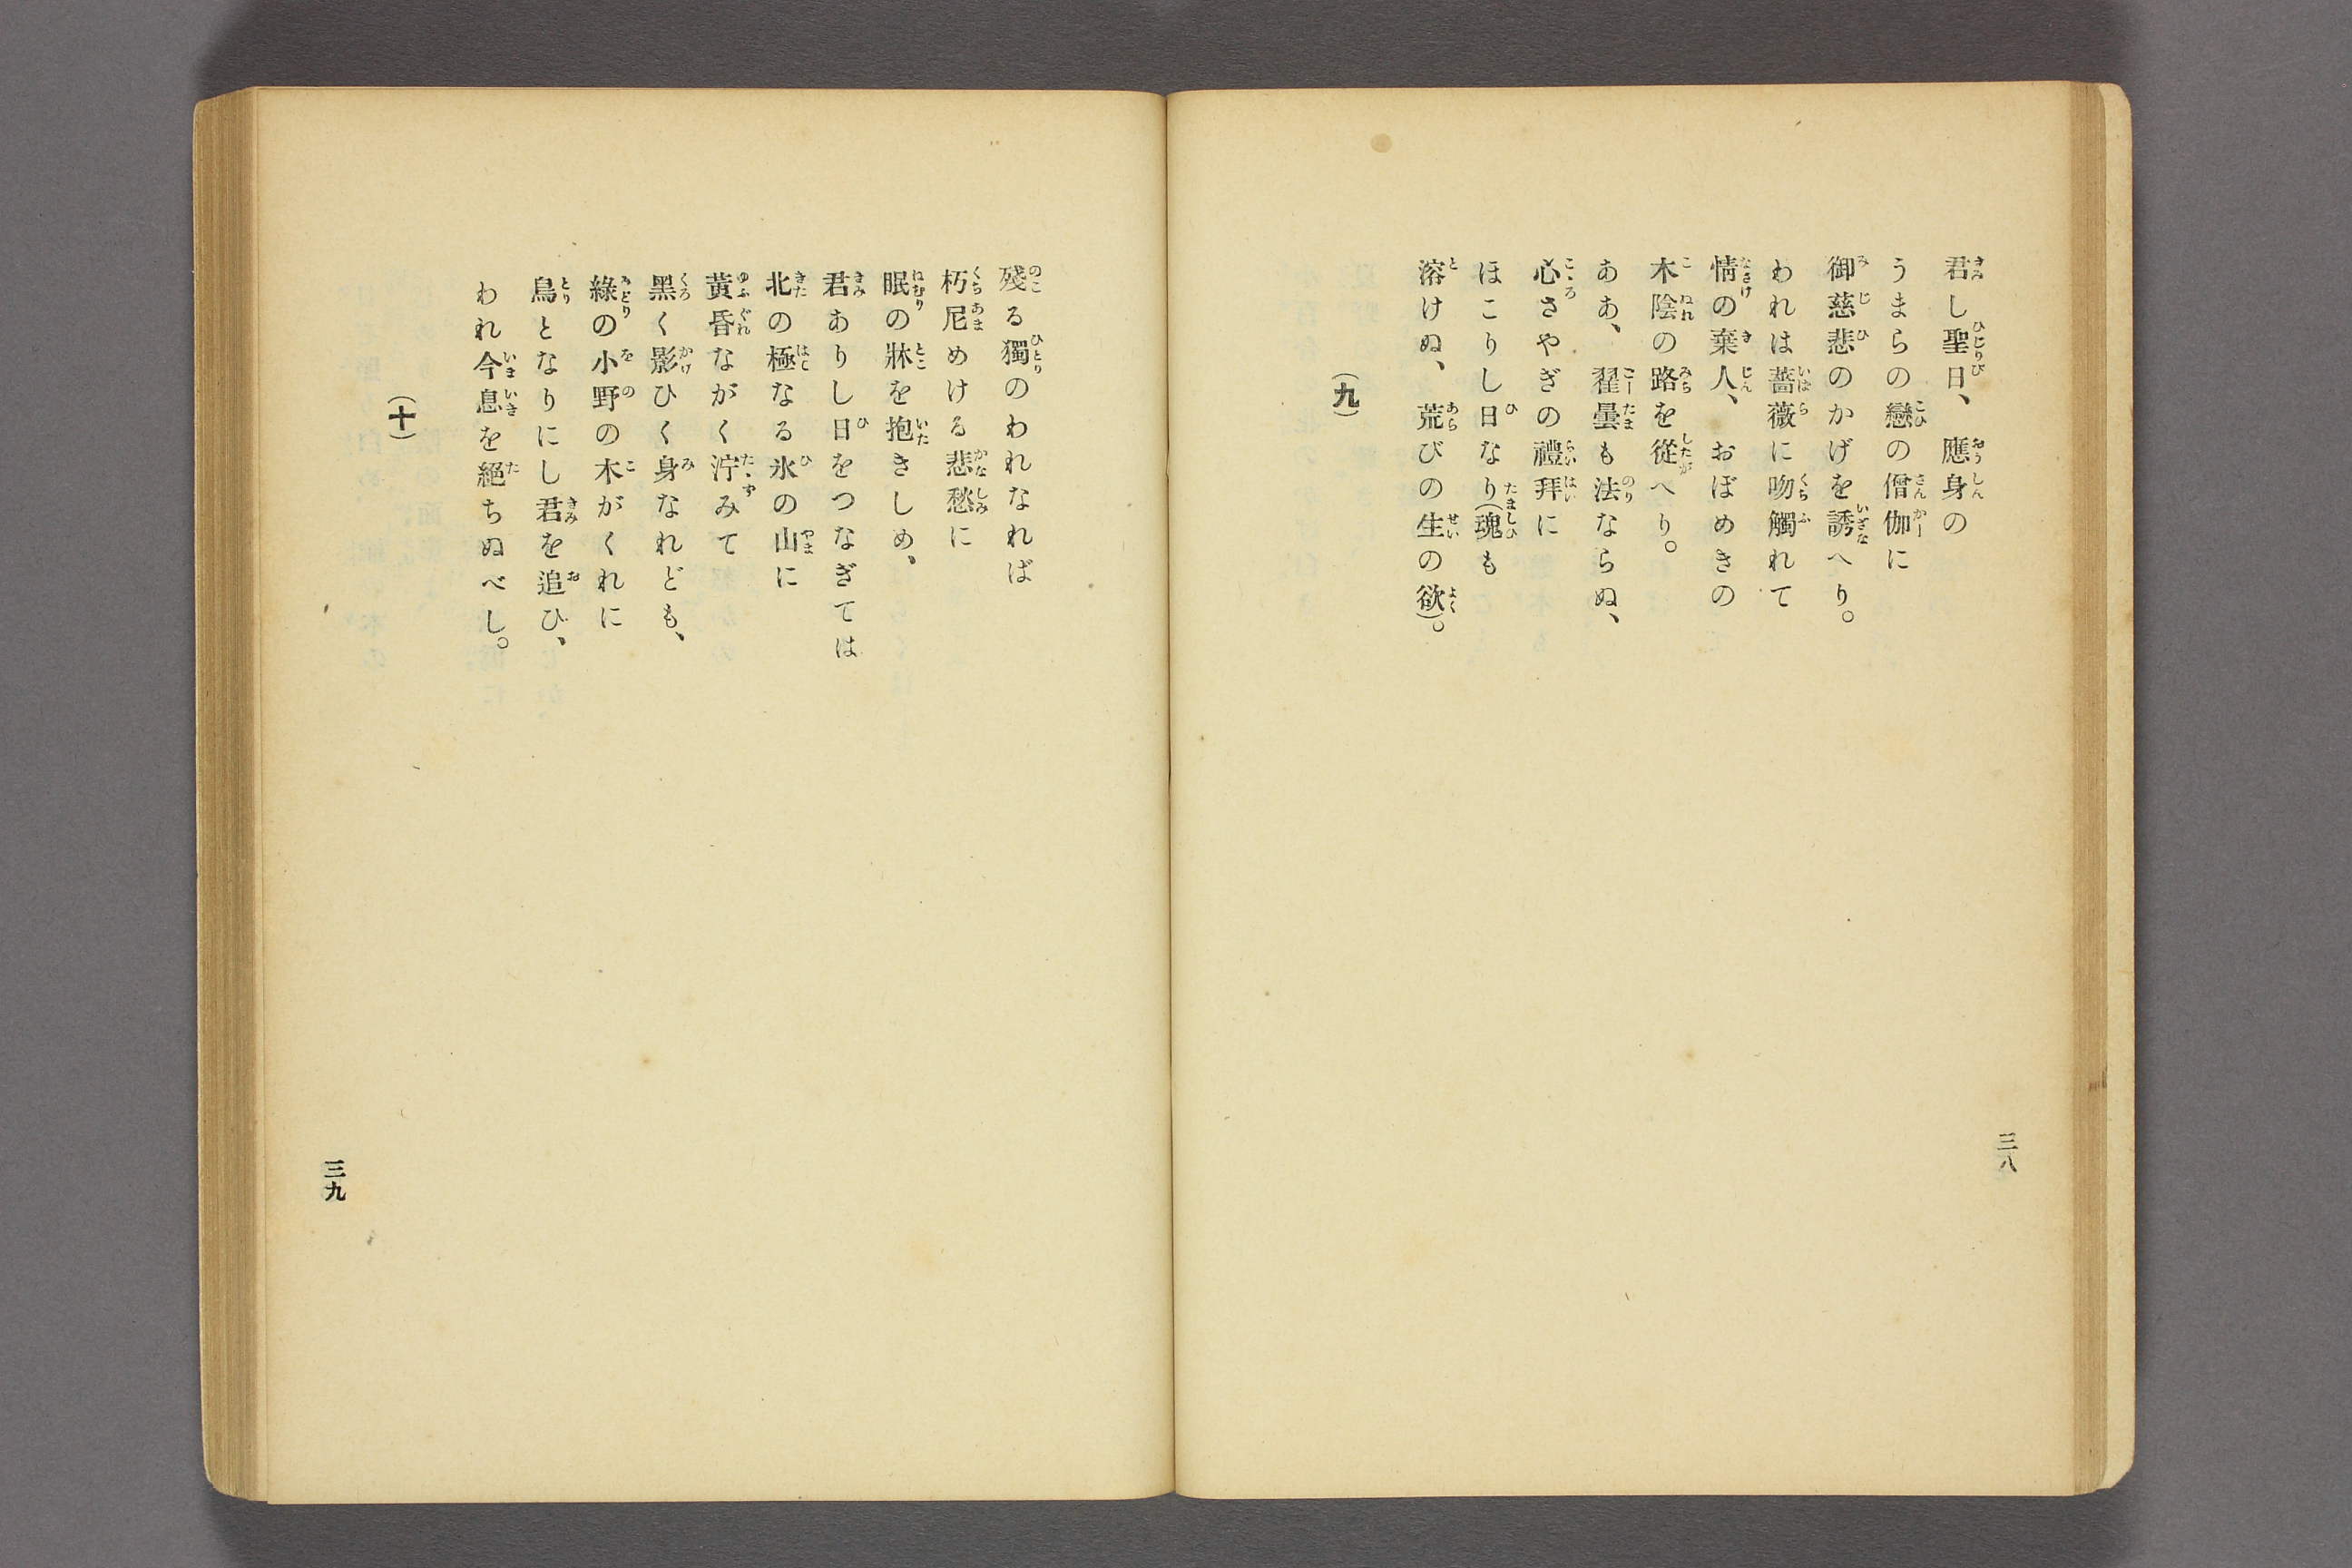 三八
君し聖日、應身の
うまらの戀の僧伽に
御慈悲のかげを誘へり。
われは薔薇に吻觸れて
情の棄人、おぼめきの
木陰の路を從へり。
ああ、瞿曇も法ならぬ、
心さやぎの禮拜に
ほこりし日なり(魂も
溶けぬ、荒びの生の欲)。
(九)
殘る獨のわれなれば
朽尼めける悲愁に
眠の牀を抱きしめ、
君ありし日をつなぎては
北の極なる氷の山に
黃昏ながく濘みて
黑く影ひく身なれども、
綠の小野の木がくれに
鳥となりにし君を追ひ、
われ今息を絕ちぬべし。
(十)
三九